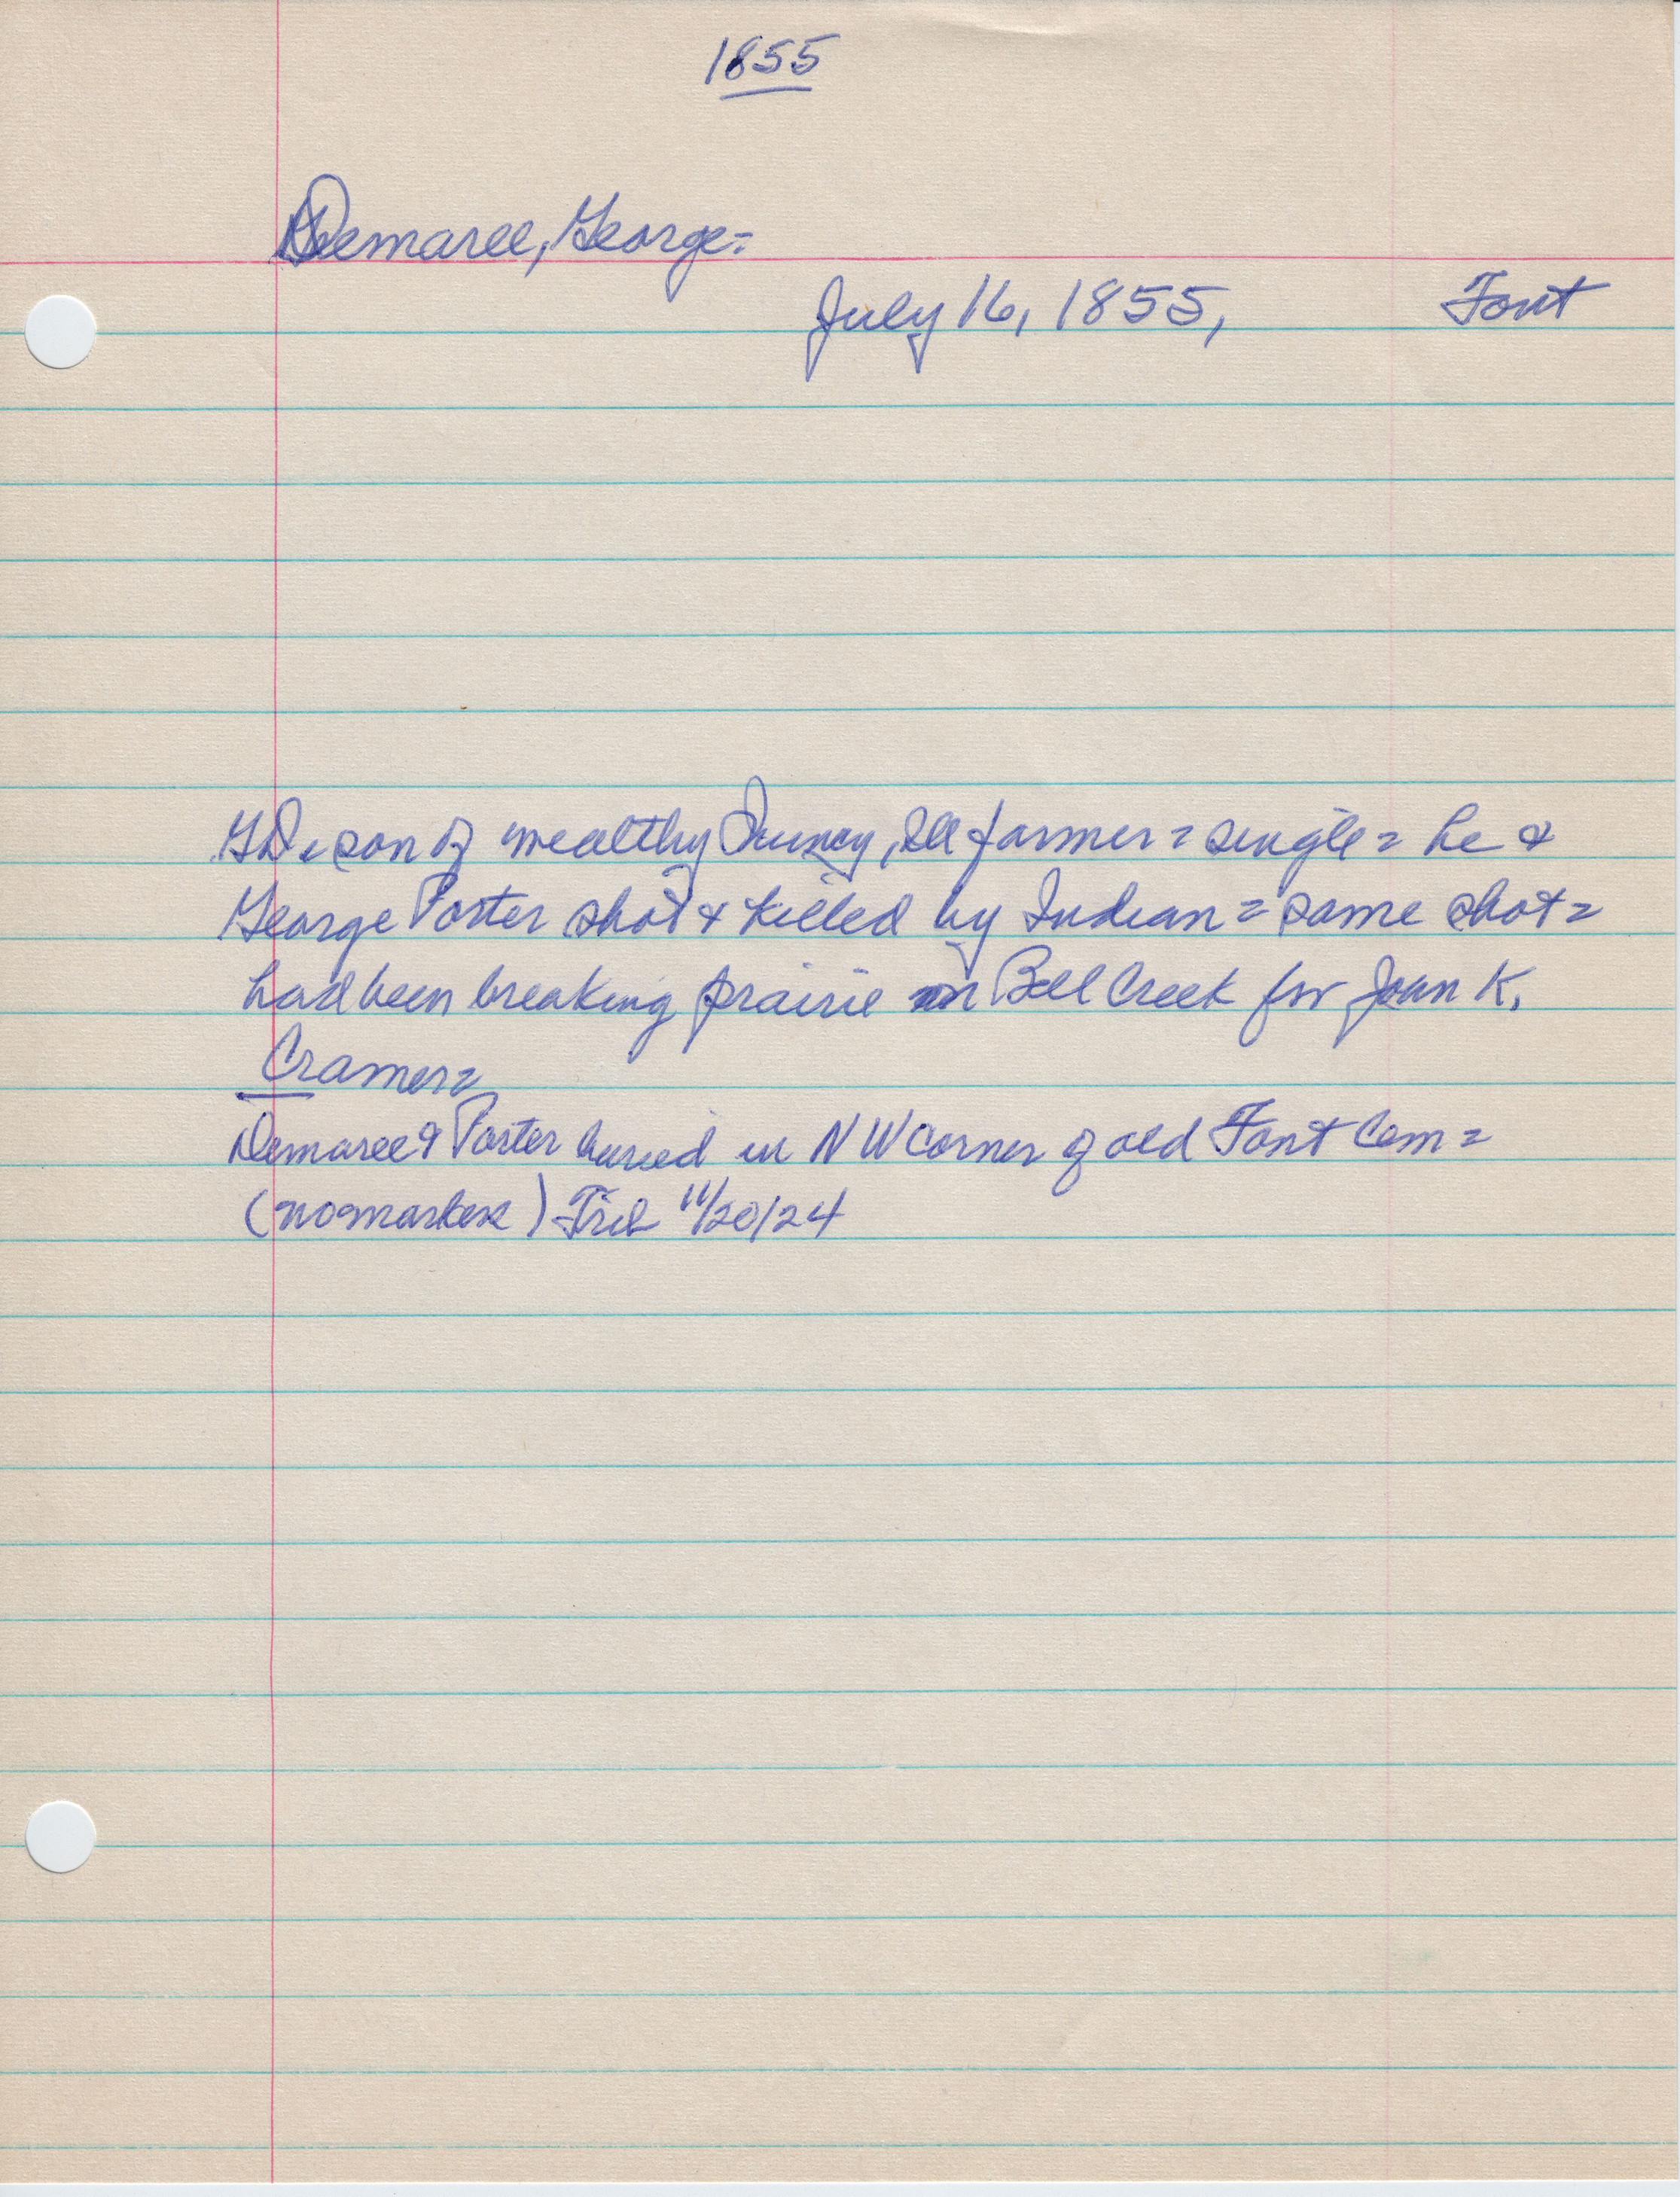 1855
Demaree, George=
July 16, 1855, Font
GD = son of wealthy Quincy, Ill farmer = single = he &
George Porter shot & killed by Indian = same shot =
had been breaking prairie on Bell Creek for John K.
Cramer=
Demaree & Porter buried in NW corner of old Font Cem =
(no marker) Trib 11/20/24